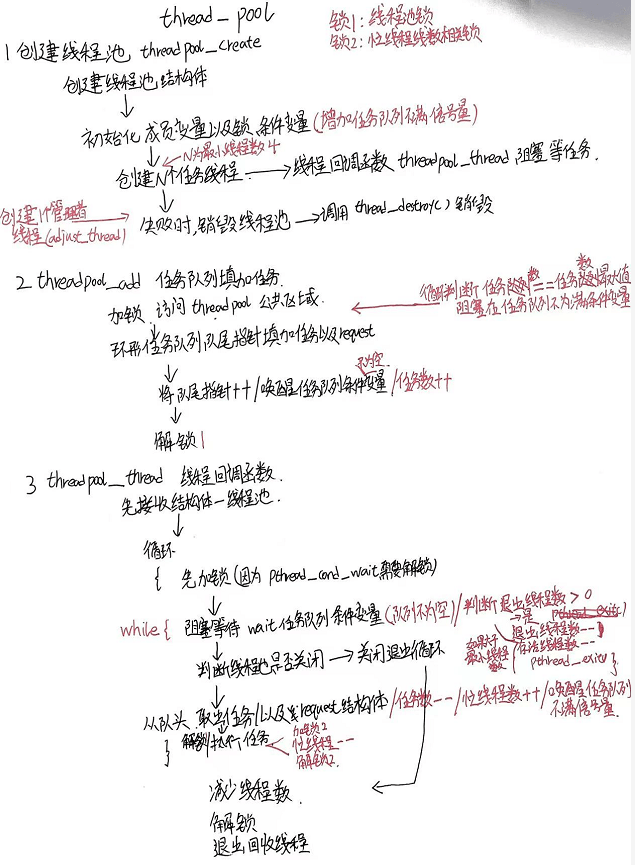 thread_pool
锁1：线程池锁
锁2：忙线程线数相关锁
1 创建线程池 threadpool_create
创建线程池结构体
初始化成员变量以及锁、条件变量(增加任务队列不满信号量)
N为最小线程数4
创建N个任务线程 → 线程回调函数 threadpool_thread 阻塞等任务.
创建1个管理者
线程(adjust_thread)
失败时,销毁线程池 → 调用thread_destroy() 销毁
2 threadpool_add 任务队列填加任务.
加锁 访问threadpool公共区域.
循环判断 任务数==任务数最大值
阻塞在任务队列不为满条件变量
环形任务队列,队尾指针填加任务以及request
将队尾指针++/唤醒任务队列不为空条件变量/任务数++
解锁1
3 threadpool_thread 线程回调函数.
先接收结构体—线程池.
循环
{ 先加锁(因为pthread_cond_wait需要解锁)
while{ 阻塞等待 wait任务队列条件变量(队列不为空)/判断退出线程数>0
→是
退出线程数--
如果大于
最小线程数
存活线程数--
pthread_exit()
}
判断线程池是否关闭 → 关闭退出循环
从队头取出任务/以及request结构体/任务数--/忙线程数++/唤醒任务队列
不满信号量.
} 解锁/执行任务
加锁2
忙线程--
解锁2
减少线程数
解锁
退出回收线程